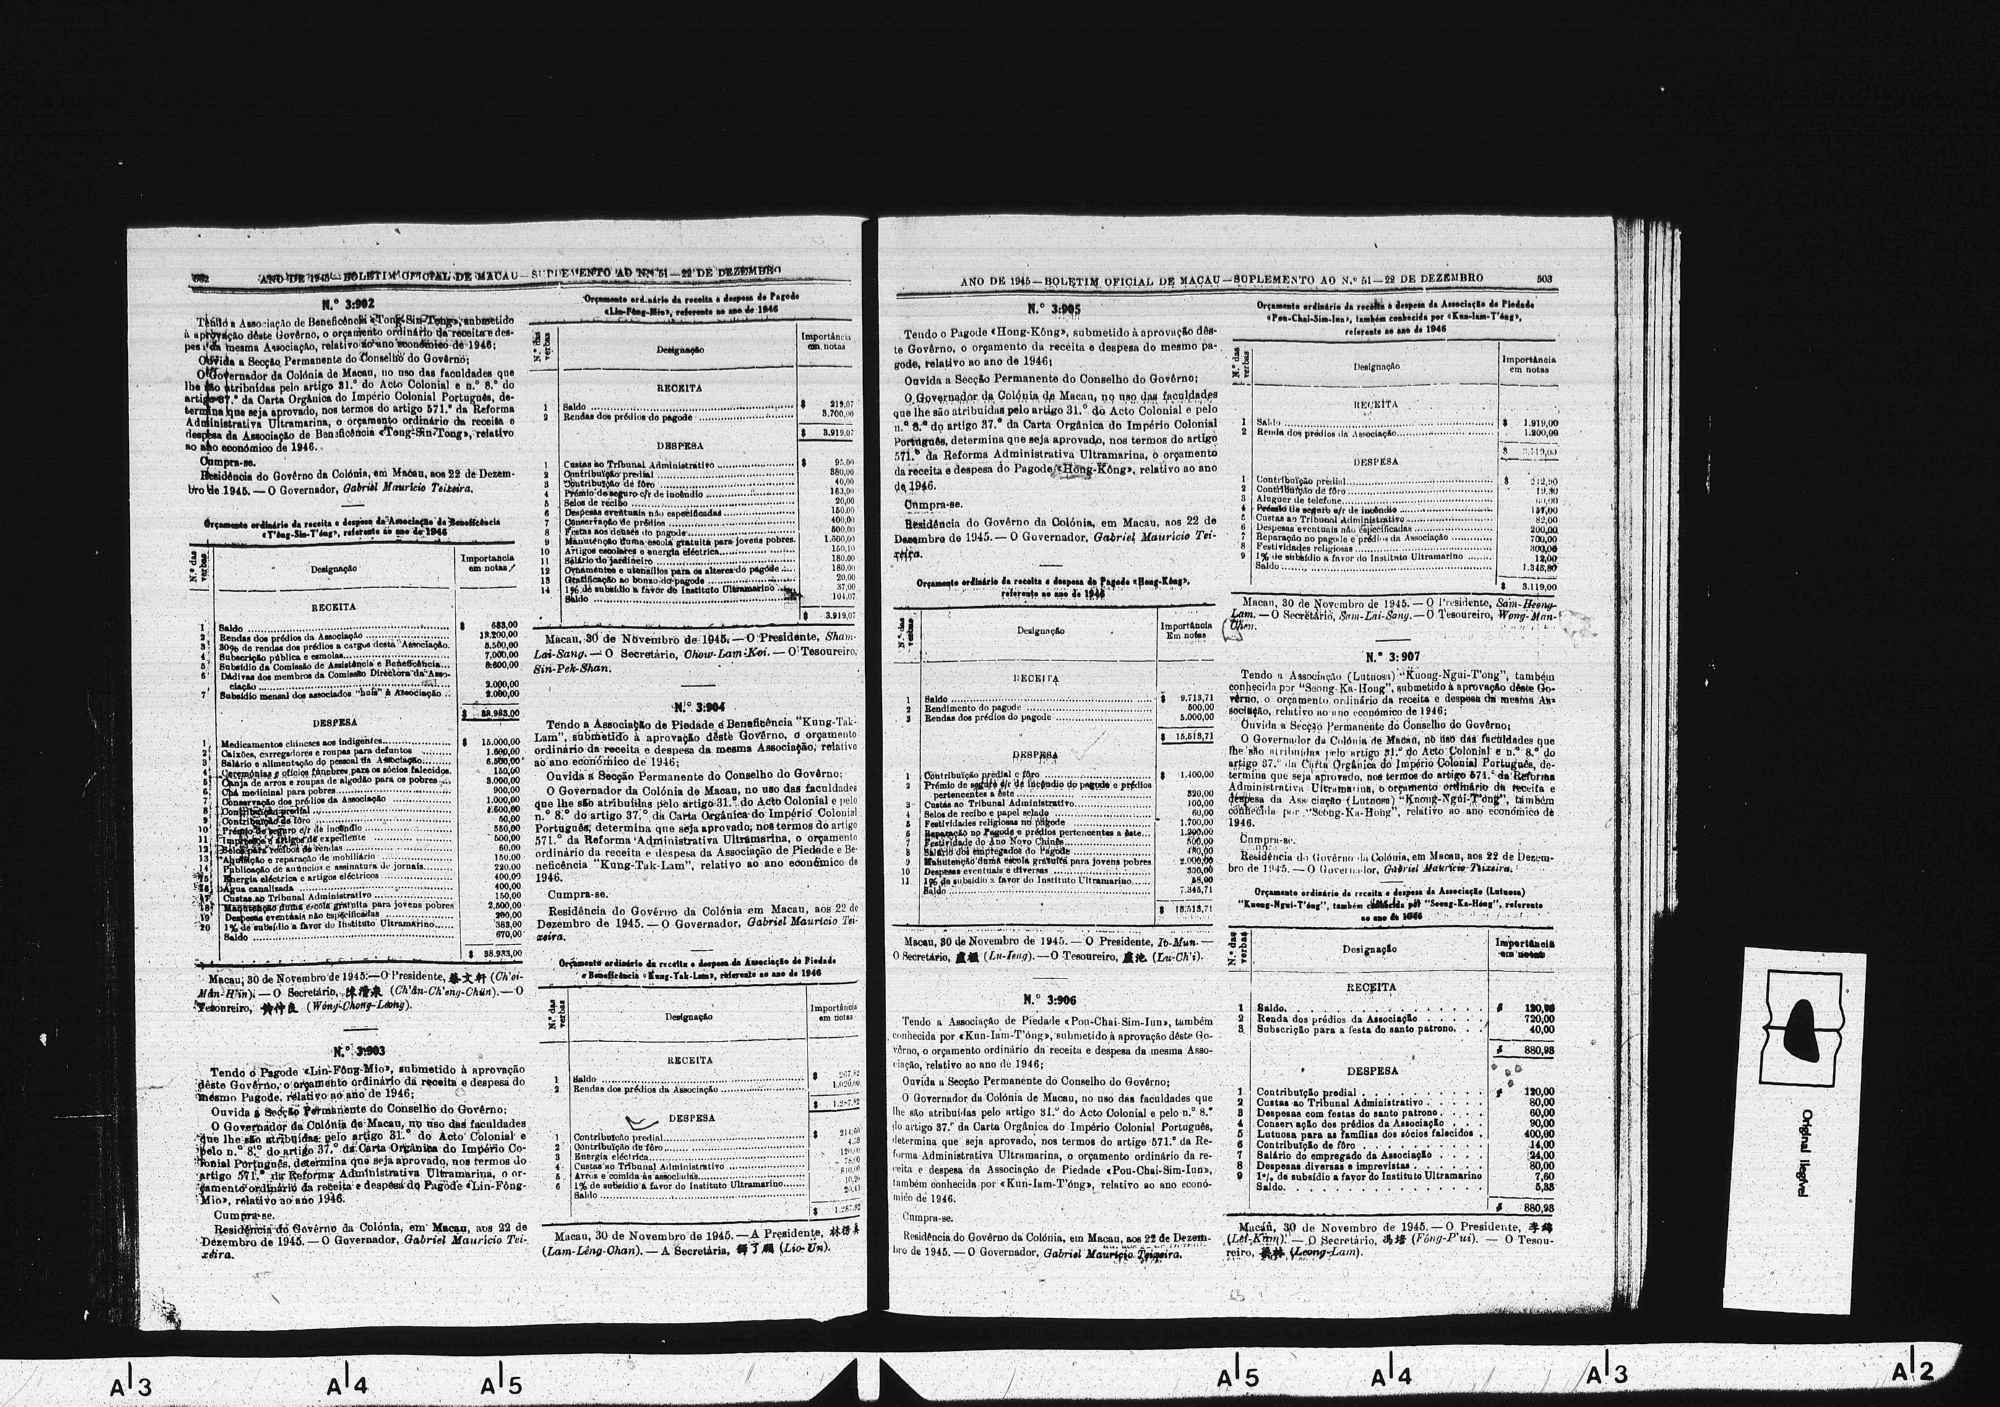 ANO DE 1945—BOLETIM OFICIAL DE MACAU—SUPLEMENTO AO N.º 51—22 DE DEZEMBRO
N.º 3:902
Tendo a Associação de Beneficência «Tong-Sin-Tong», submetido
à aprovação dêste Govêrno, o orçamento ordinário da receita e des-
pesa da mesma Associação, relativo ao ano económico de 1946;
Ouvida a Secção Permanente do Conselho do Govêrno;
O Governador da Colónia de Macau, no uso das faculdades que
lhe são atribuídas pelo artigo 31.º do Acto Colonial e n.º 8.º do
artigo 37.º da Carta Orgânica do Império Colonial Português, de-
termina que seja aprovado, nos termos do artigo 571.º da Reforma
Administrativa Ultramarina, o orçamento ordinário da receita e
despesa da Associação de Beneficência «Tong-Sin-Tong», relativo
ao ano económico de 1946.
Cumpra-se.
Residência do Govêrno da Colónia, em Macau, aos 22 de Dezem-
bro de 1945.—O Governador, Gabriel Maurício Teixeira.
Orçamento ordinário da receita e despesa da Associação de Beneficência
«T'ông-Sin-T'óng», referente ao ano de 1946
N.º das verbas Designação Importancia em notas
RECEITA
1 Saldo $ 683,00
2 Rendas dos prédios da Associação 13.200,00
3 30% de rendas dos prédios a cargos desta Associação. 5.500,00
4 Subscrição pública e esmolas 7.000,00
5 Subsídio da Comissão de Assistência e Beneficência 8.600,00
6 Dádivas dos membros da Comissão Directora da Asso-
ciação 2.000,00
7 Subsídio mensal dos associados à Associação 2.000,00
$ 38.983,00
DESPESA
1 Medicamentos chineses aos indigentes $ 15.000,00
2 Caixões, carregadores e roupas para defuntos 1.600,00
3 Salário e alimentação do pessoal da Associação 6.500,00
4 Ceremónias e ofícios fúnebres para os sócios falecidos. 150,00
5 Canja de arroz e roupas de algodão para os pobres 3.000,00
6 Chá medicinal para pobres 900,00
7 Conservação dos prédios da Associação 1.000,00
8 Contribuïção predial 4.600,00
9 Contribuïção de fôro 50,00
10 Prémio de seguro c/r de incêndio 550,00
11 Impressos e artigos de expediente 500,00
12 Selos para recibos de rendas 60,00
13 Aquisição e reparação de mobiliário 150,00
14 Publicação de anúncios e assinatura de jornais 220,00
15 Energia eléctrica e artigos eléctricos 400,00
16 Água canalizada 400,00
17 Custas ao Tribunal Administrativo 150,00
18 Manutenção duma escola gratuita para jovens pobres 2.500,00
19 Despesas eventuais não especificadas 200,00
20 1% de subsídio a favor do Instituto Ultramarino 383,00
Saldo 670,00
$ 38.983,00
Macau, 30 de Novembro de 1945.—O Presidente, 蔡文軒 (Ch'oi-
Mân-H'in).—O Secretário, (Ch'ân-Ch'eng-Chün).—O
Tesoureiro, (Wóng-Chong-Leong).
N.º 3:903
Tendo o Pagode «Lin-Fông-Mio», submetido à aprovação
dêste Govêrno, o orçamento ordinário da receita e despesa do
mesmo Pagode, relativo ao ano de 1946;
Ouvida a Secção Permanente do Conselho do Govêrno;
O Governador da Colónia de Macau, no uso das faculdades
que lhe são atribuídas pelo artigo 31.º do Acto Colonial e
pelo n.º 8.º do artigo 37.º da Carta Orgânica do Império Co-
lonial Português, determina que seja aprovado, nos termos do
artigo 571.º da Reforma Administrativa Ultramarina, o or-
çamento ordinário da receita e despesa do Pagode «Lin-Fông-
Mio», relativo ao ano 1946.
Cumpra-se.
Residência do Govêrno da Colónia, em Macau, aos 22 de
Dezembro de 1945.—O Governador, Gabriel Maurício Tei-
xeira.
Orçamento ordinário da receita e despesa do Pagode
«Lin-Fông-Mio», referente ao ano de 1946
N.º das verbas Designação Importância em notas
RECEITA
1 Saldo $ 219,07
2 Rendas dos prédios do pagode 3.700,00
$ 3.919,07
DESPESA
1 Custas ao Tribunal Administrativo $ 95,00
2 Contribuïção predial 380,00
3 Contribuïção de fôro 40,00
4 Prémio de seguro c/r de incêndio 163,00
5 Selos de recibo 20,00
6 Despesas eventuais não especificadas 150,00
7 Conservação de prédios 400,00
8 Festas aos deuses do pagode 500,00
9 Manutenção duma escola gratuita para jovens pobres. 1.500,00
10 Artigos escolares e energia eléctrica 150,00
11 Salário do jardineiro 180,00
12 Ornamentos e utensílios para os alteres do pagode 180,00
13 Gratificação ao bonzo do pagode 20,00
14 1% de subsídio a favor do Instituto Ultramarino 37,00
Saldo 104,07
$ 3.919,07
Macau, 30 de Novembro de 1945.—O Presidente, Sham-
Lai-Sang.—O Secretário, Chow-Lam-Koi.—O Tesoureiro,
Sin-Pek-Shan.
N.º 3:904
Tendo a Associação de Piedade e Beneficência "Kung-Tak-
Lam", submetido à aprovação dêste Govêrno, o orçamento
ordinário da receita e despesa da mesma Associação, relativo
ao ano económico de 1946;
Ouvida a Secção Permanente do Conselho do Govêrno;
O Governador da Colónia de Macau, no uso das faculdades
que lhe são atribuídas pelo artigo 31.º do Acto Colonial e pelo
n.º 8.º do artigo 37.º da Carta Orgânica do Império Colonial
Português, determina que seja aprovado, nos termos do artigo
571.º da Reforma Administrativa Ultramarina, o orçamento
ordinário da receita e despesa da Associação de Piedade e Be-
neficência "Kung-Tak-Lam", relativo ao ano económico de
1946.
Cumpra-se.
Residência do Govêrno da Colónia em Macau, aos 22 de
Dezembro de 1945.—O Governador, Gabriel Maurício Tei-
xeira.
Orçamento ordinário da receita e despesa da Associação de Piedade
e Beneficência «Kung-Tak-Lam», referente ao ano de 1946
N.º das verbas Designação Importância em notas
RECEITA
1 Saldo $ 267,82
2 Rendas dos prédios da Associação 1.020,00
$ 1.287,82
DESPESA
1 Contribuïção predial $
2 Contribuïção de fôro
3 Energia eléctrica
4 Custas ao Tribunal Administrativo
5 Arroz e comida às associadas
6 1% de subsídio a favor do Instituto Ultramarino
Saldo
$ 1.287,82
Macau, 30 de Novembro de 1945.—A Presidente,
(Lam-Lêng-Chan).—A Secretária, (Lio-Un).
ANO DE 1945—BOLETIM OFICIAL DE MACAU—SUPLEMENTO AO N.º 51—22 DE DEZEMBRO 503
N.º 3:905
Tendo o Pagode «Hong-Kông», submetido à aprovação dês-
te Govêrno, o orçamento da receita e despesa do mesmo pa-
gode, relativo ao ano de 1946;
Ouvida a Secção Permanente do Conselho do Govêrno;
O Governador da Colónia de Macau, no uso das faculdades
que lhe são atribuídas pelo artigo 31.º do Acto Colonial e pelo
n.º 8.º do artigo 37.º da Carta Orgânica do Império Colonial
Português, determina que seja aprovado, nos termos do artigo
571.º da Reforma Administrativa Ultramarina, o orçamento
da receita e despesa do Pagode «Hong-Kông», relativo ao ano
de 1946.
Cumpra-se.
Residência do Govêrno da Colónia, em Macau, aos 22 de
Dezembro de 1945.—O Governador, Gabriel Maurício Tei-
xeira.
Orçamento ordinário da receita e despesa do Pagode «Hong-Kông»,
referente ao ano de 1946
N.º das verbas Designação Importância Em notas
RECEITA
1 Saldo $ 9.713,71
2 Rendimento do pagode 800,00
3 Rendas dos prédios do pagode 5.000,00
$ 15.513,71
DESPESA
1 Contribuïção predial e fôro $ 1.400,00
2 Prémio de seguro c/r de incêndio do pagode e prédios
pertencentes a êste 320,00
3 Custas ao Tribunal Administrativo 100,00
4 Selos de recibo e papel selado 60,00
5 Festividades religiosas no pagode 1.700,00
6 Reparação no Pagode e prédios pertencentes a êste 1.200,00
7 Festividade do Ano Novo Chinês 500,00
8 Salário dos empregados do Pagode 480,00
9 Manutenção duma escola gratuita para jovens pobres 2.000,00
10 Despesas eventuais e diversas 350,00
11 1% de subsídio a favor do Instituto Ultramarino 58,00
Saldo 7.345,71
$ 15.513,71
Macau, 30 de Novembro de 1945.—O Presidente, Io-Mun.—
O Secretário, (Lu-Ieng).—O Tesoureiro, 盧池 (Lu-Ch'i).
N.º 3:906
Tendo a Associação de Piedade «Pou-Chai-Sim-Iun», também
conhecida por «Kun-Iam-T'óng», submetido à aprovação dêste Go-
vêrno, o orçamento ordinário da receita e despesa da mesma Asso-
ciação, relativo ao ano de 1946;
Ouvida a Secção Permanente do Conselho do Govêrno;
O Governador da Colónia de Macau, no uso das faculdades que
lhe são atribuídas pelo artigo 31.º do Acto Colonial e pelo n.º 8.º
do artigo 37.º da Carta Orgânica do Império Colonial Português,
determina que seja aprovado, nos termos do artigo 571.º da Re-
forma Administrativa Ultramarina, o orçamento ordinário da re-
ceita e despesa da Associação de Piedade «Pou-Chai-Sim-Iun»,
também conhecida por «Kun-Iam-T'óng», relativo ao ano econó-
mico de 1946.
Cumpra-se.
Residência do Govêrno da Colónia, em Macau, aos 22 de Dezem-
bro de 1945.—O Governador, Gabriel Maurício Teixeira.
Orçamento ordinário da receita e despesa da Associação de Piedade
«Pou-Chai-Sim-Iun», também conhecida por «Kun-Iam-T'óng»,
referente ao ano de 1946
N.º das verbas Designação Importância em notas
RECEITA
1 Saldo $ 1.919,00
2 Renda dos prédios da Associação 1.200,00
$ 3.119,00
DESPESA
1 Contribuïção predial $ 212,90
2 Contribuïção de fôro
3 Aluguer de telefone
4 Prémio de seguro c/r de incêndio
5 Custas ao Tribunal Administrativo 82,00
6 Despesas eventuais não especificadas 200,00
7 Reparação no pagode e prédios da Associação 700,00
8 Festividades religiosas 300,00
9 1% de subsídio a favor do Instituto Ultramarino 12,00
Saldo 1.343,80
$ 3.119,00
Macau, 30 de Novembro de 1945.—O Presidente, Sam-Heong-
Lam.—O Secretário, Sam-Lai-Sang.—O Tesoureiro, Wong-Man-
Chen.
N.º 3:907
Tendo a Associação (Lutuosa) "Kuong-Ngui-T'ong", também
conhecida por "Seong-Ka-Hong", submetido à aprovação dêste Go-
vêrno, o orçamento ordinário da receita e despesa da mesma As-
sociação, relativo ao ano económico de 1946;
Ouvida a Secção Permanente do Conselho do Govêrno;
O Governador da Colónia de Macau, no uso das faculdades que
lhe são atribuídas pelo artigo 31.º do Acto Colonial e n.º 8.º do
artigo 37.º da Carta Orgânica do Império Colonial Português, de-
termina que seja aprovado, nos termos do artigo 571.º da Reforma
Administrativa Ultramarina, o orçamento ordinário da receita e
despesa da Associação (Lutuosa) "Kuong-Ngui-T'ong", também
conhecida por "Seong-Ka-Hong", relativo ao ano económico de
1946.
Cumpra-se.
Residência do Govêrno da Colónia, em Macau, aos 22 de Dezem-
bro de 1945.—O Governador, Gabriel Maurício Teixeira.
Orçamento ordinário da receita e despesa da Associação (Lutuosa)
"Kuong-Ngui-T'óng", também conhecida por "Seong-Ka-Hong", referente
ao ano de 1946
N.º das verbas Designação Importância em notas
RECEITA
1 Saldo $ 120,98
2 Renda dos prédios da Associação 720,00
3 Subscrição para a festa do santo patrono 40,00
$ 880,98
DESPESA
1 Contribuïção predial $ 120,00
2 Custas ao Tribunal Administrativo 80,00
3 Despesas com festas do santo patrono 60,00
4 Conservação dos prédios da Associação 90,00
5 Lutuosa para as famílias dos sócios falecidos 400,00
6 Contribuïção de fôro 14,00
7 Salário do empregado da Associação 24,00
8 Despesas diversas e imprevistas 80,00
9 1% de subsídio a favor do Instituto Ultramarino 7,60
Saldo 5,38
$ 880,98
Macau, 30 de Novembro de 1945.—O Presidente,
(Lei-Kam).—O Secretário, 馮培 (Fóng-P'ui).—O Tesou-
reiro, (Leong-Lam).
Original Ilegível
A 3 A 4 A 5 A 5 A 4 A 3 A 2